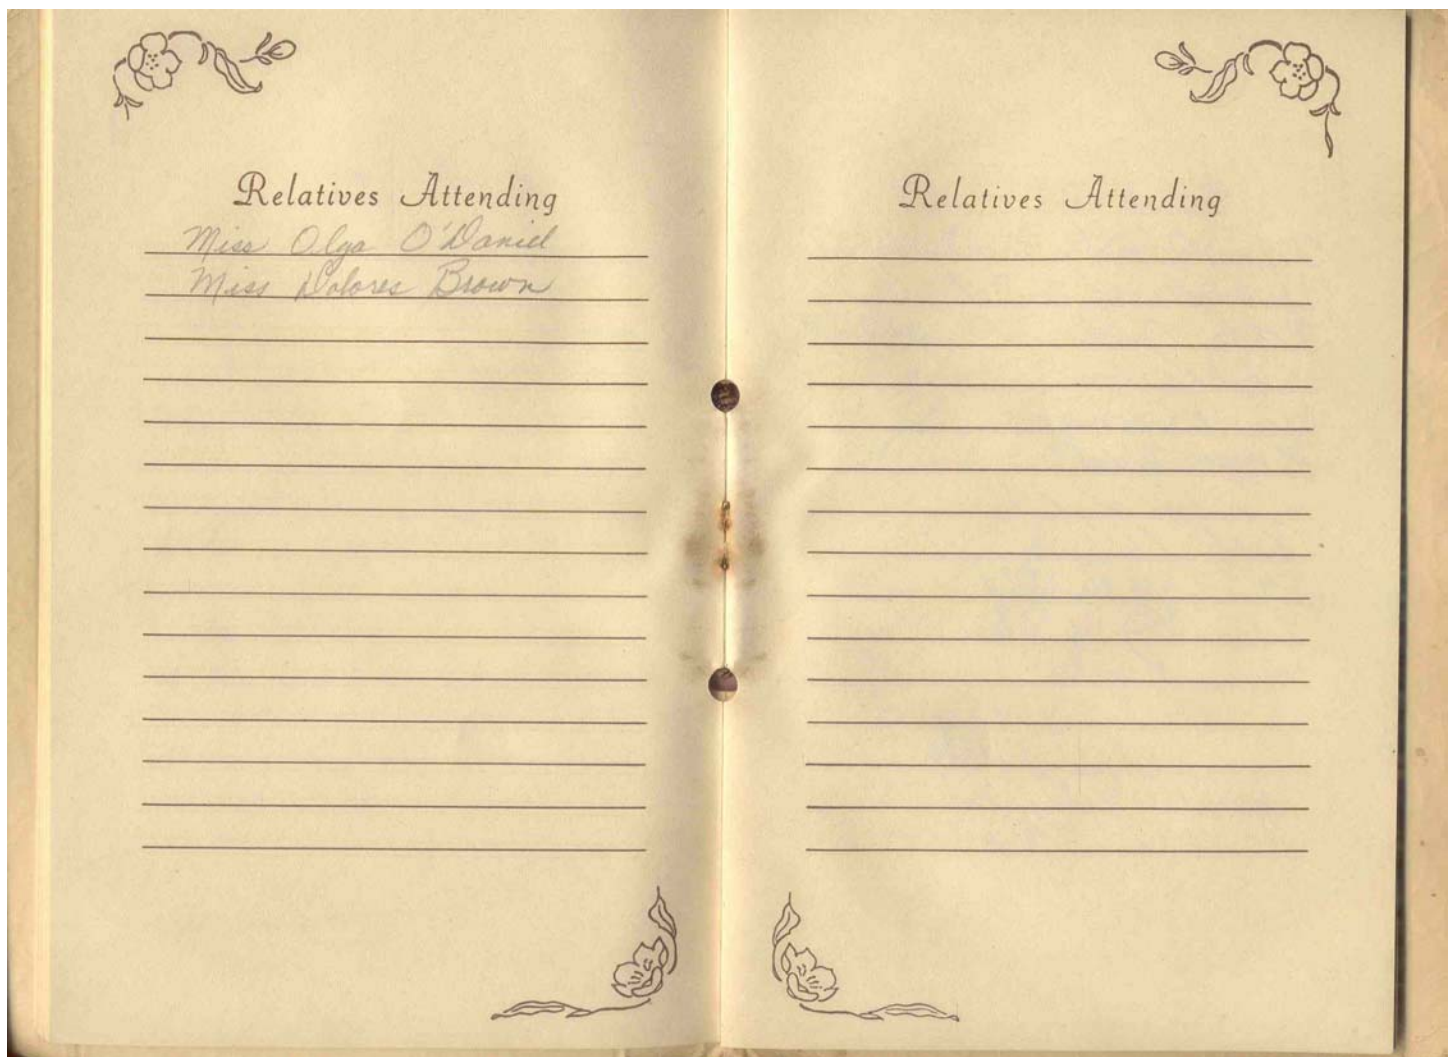 Relatives Attending
Miss Olga O'Daniel
Miss Dolores Brown
Relatives Attending